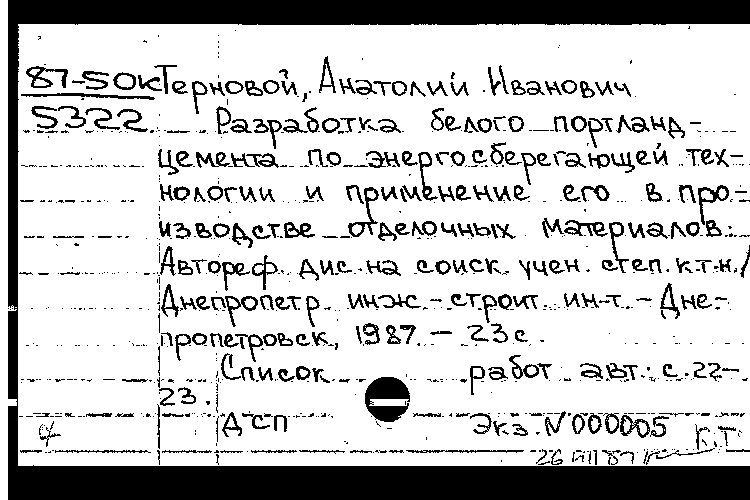 87-50к Терновой, Анатолий Иванович
5322 Разработка белого портланд-
цемента по энергосберегающей тех-
нологии и применение его в про-
изводстве отделочных материалов:
Автореф. дис. на соиск. учен. степ. к.т.н. /
Днепропетр. инж-строит. ин-т. - Дне-
пропетровск, 1987. - 23с.
Список работ авт.: с. 22-
23.
ДСП Экз. N 000005
К.Т
26 VIII 87